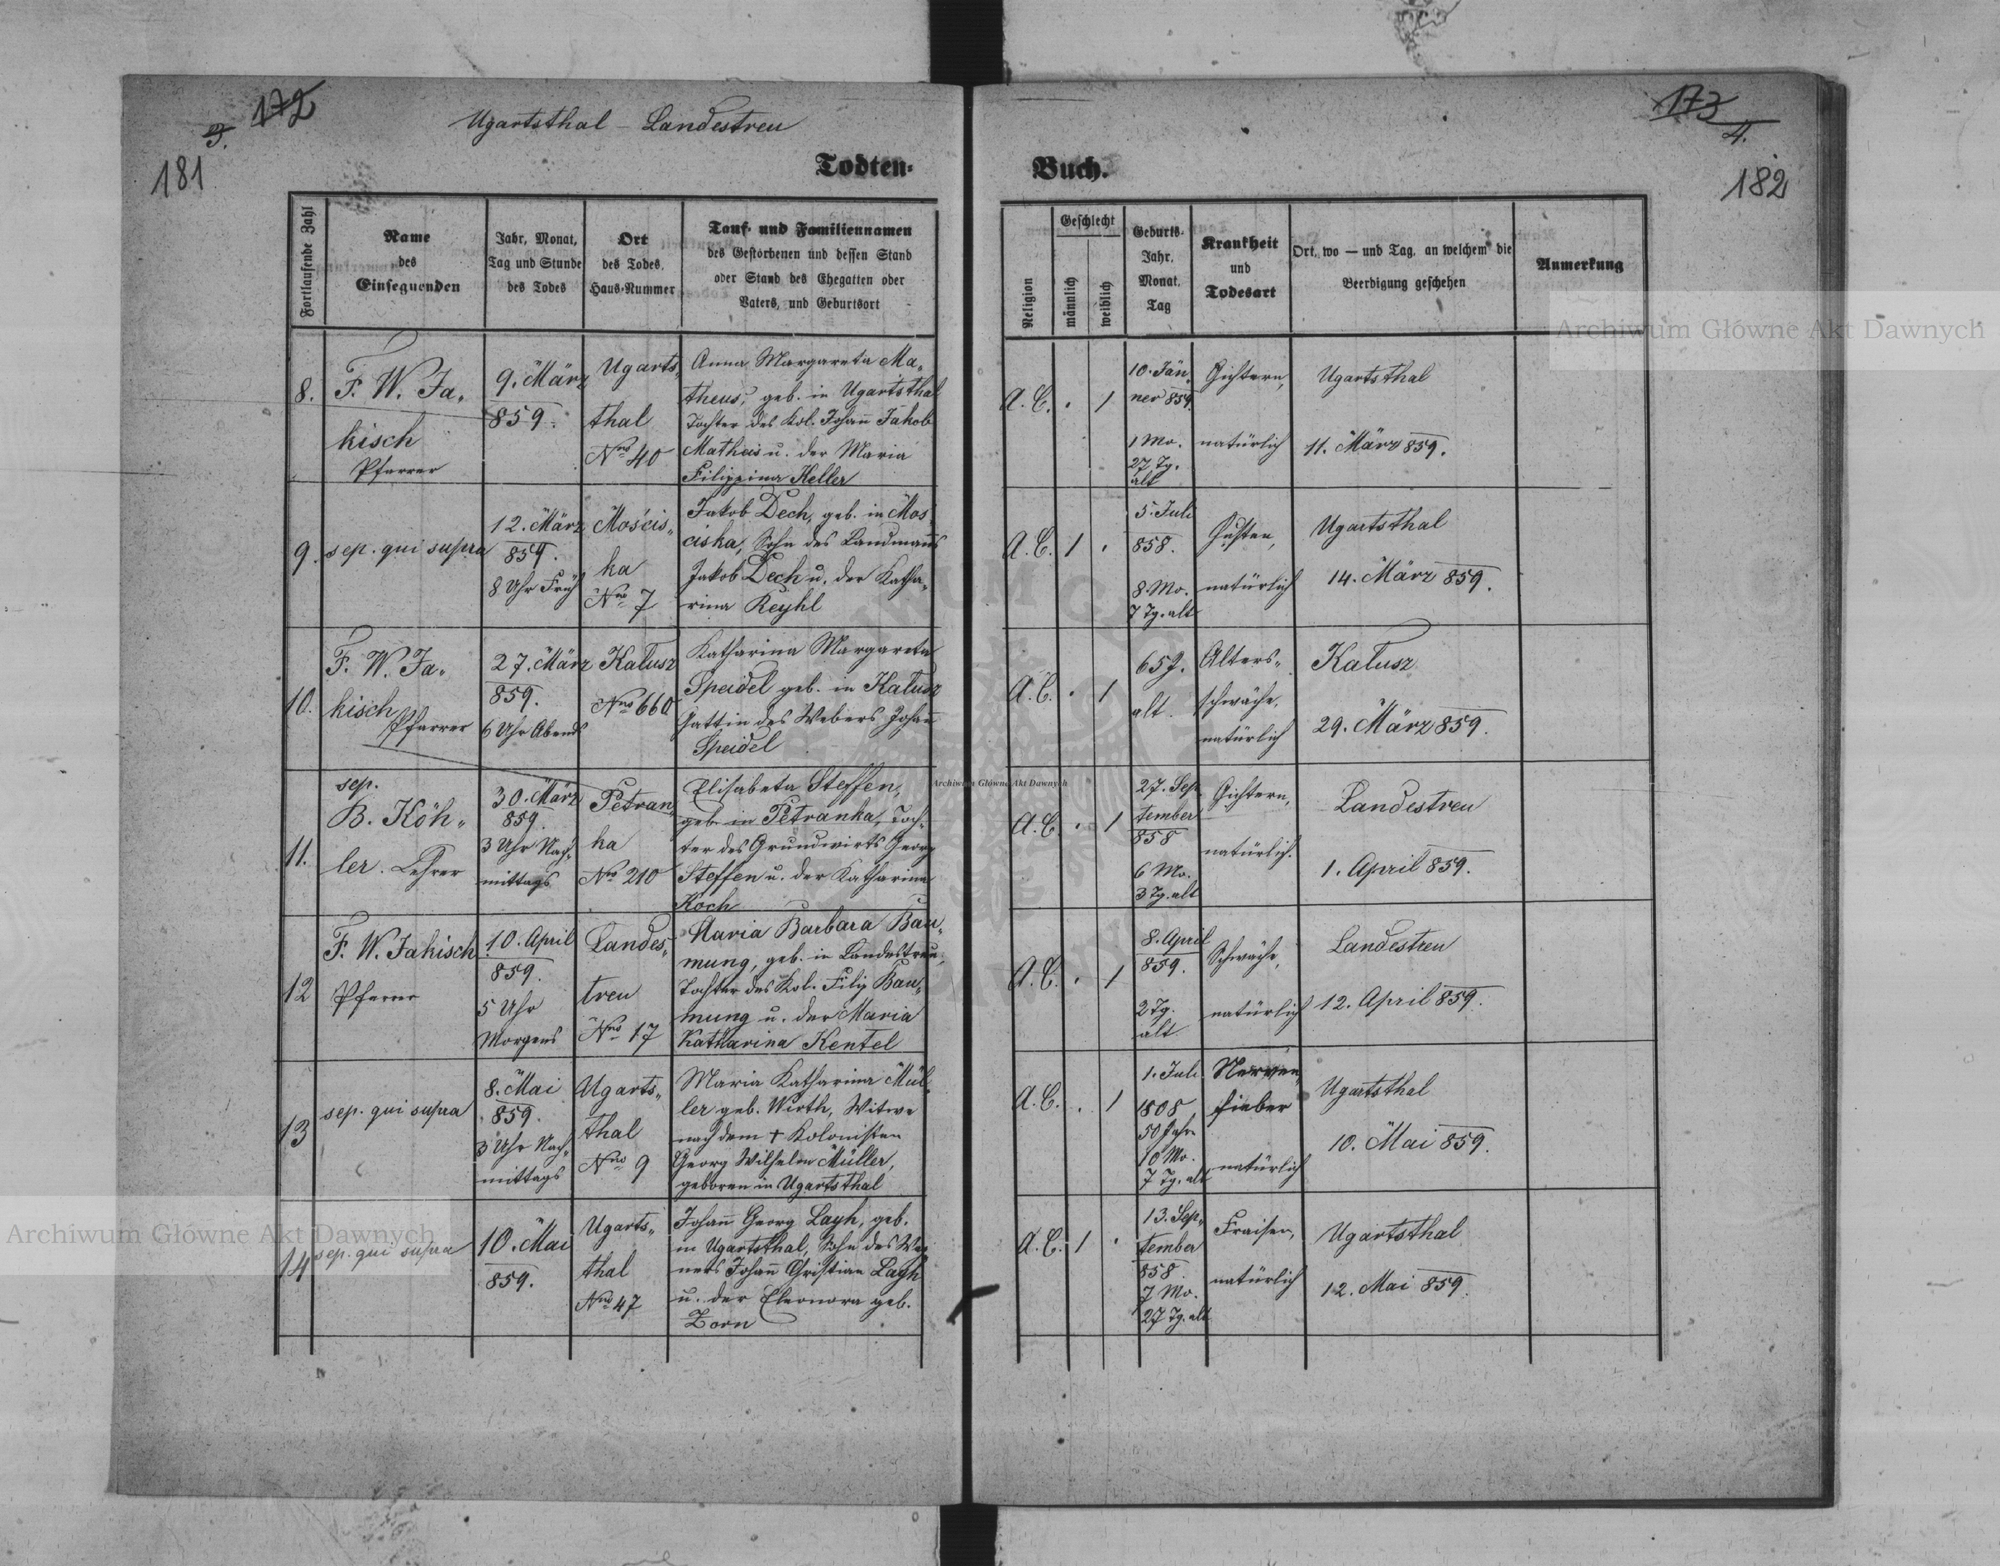 172
3.
181
Ugartsthal – Landestreu
Todten-
Fortlaufende Zahl
Name
des
Einsegnenden
Jahr, Monat,
Tag und Stunde
des Todes
Ort
des Todes,
Haus-Nummer
Tauf- und Familiennamen
des Gestorbenen und dessen Stand
oder Stand des Ehegatten oder
Vaters, und Geburtsort
8.
F. W. Ja-
kisch
Pfarrer
9. März
859.
Ugarts-
thal
Nro 40
Anna Margareta Ma-
theus, geb. in Ugartsthal
Tochter des Kol. Johann Jakob
Matheis u. der Maria
Filippina Keller
9.
sep. qui supra
12. März
859.
8 Uhr Früh
Mościs-
ka
Nro 7
Jakob Dech, geb. in Mos-
ciska, Sohn des Landmanns
Jakob Dech u. der Katha-
rina Reyhl
10.
F. W. Ja-
kisch
Pfarrer
27. März
859.
6 Uhr Abends
Kalusz
Nro 660
Katharina Margareta
Speidel geb. in Kalusz
Gattin des Webers Johann
Speidel
11.
sep.
B. Köh-
ler. Lehrer
30. März
859.
3 Uhr Nach-
mittags
Petran-
ka
Nro 210
Elisabeta Steffen,
geb. in Petranka, Toch-
ter des Grundwirts Georg
Steffen u. der Katharina
Koch
12
F. W. Jakisch
Pfarrer
10. April
859.
5 Uhr
Morgens
Landes-
treu
Nro 17
Maria Barbara Bau-
mung, geb. in Landestreu,
Tochter des Kol. Filip Bau-
mung u. der Maria
Katharina Kentel
13
sep. qui supra
8. Mai
859.
3 Uhr Nach-
mittags
Ugarts-
thal
Nro 9
Maria Katharina Mül-
ler geb. Wirth, Witwe
nach dem † Kolonisten
Georg Wilhelm Müller,
geboren in Ugartsthal
14
sep. qui supra
10. Mai
859.
Ugarts-
thal
Nro 47
Johann Georg Layh, geb.
in Ugartsthal, Sohn des Wag-
ners Johann Christian Layh
u. der Eleonora geb.
Zorn
173
4.
182
Buch.
Religion
Geschlecht
männlich
weiblich
Geburts-
Jahr,
Monat,
Tag
Krankheit
und
Todesart
Ort, wo — und Tag, an welchem die
Beerdigung geschehen
Anmerkung
A. C. . 1
10. Jän-
ner 859.
1 Mo.
27 Tg.
alt
Gichtern,
natürlich
Ugartsthal
11. März 859.
A. C. 1 .
5. Juli
858.
8 Mo.
7 Tg. alt
Husten,
natürlich
Ugartsthal
14. März 859.
A. C. . 1
65 J.
alt.
Alters-
schwäche,
natürlich
Kalusz
29. März 859.
A. C. . 1
27. Sep-
tember
858
6 Mo.
3 Tg. alt
Gichtern,
natürlich.
Landestreu
1. April 859.
A. C. . 1
8. April
859.
2 Tg.
alt
Schwäche,
natürlich
Landestreu
12. April 859.
A. C. . 1
1. Juli
1808
50 Jahre
10 Mo.
7 Tg. alt
Nerven-
fieber
natürlich
Ugartsthal
10. Mai 859.
A. C. 1 .
13. Sep-
tember
858.
7 Mo.
27 Tg. alt
Fraisen,
natürlich
Ugartsthal
12. Mai 859.
Archiwum Główne Akt Dawnych
Archiwum Główne Akt Dawnych
Archiwum Główne Akt Dawnych